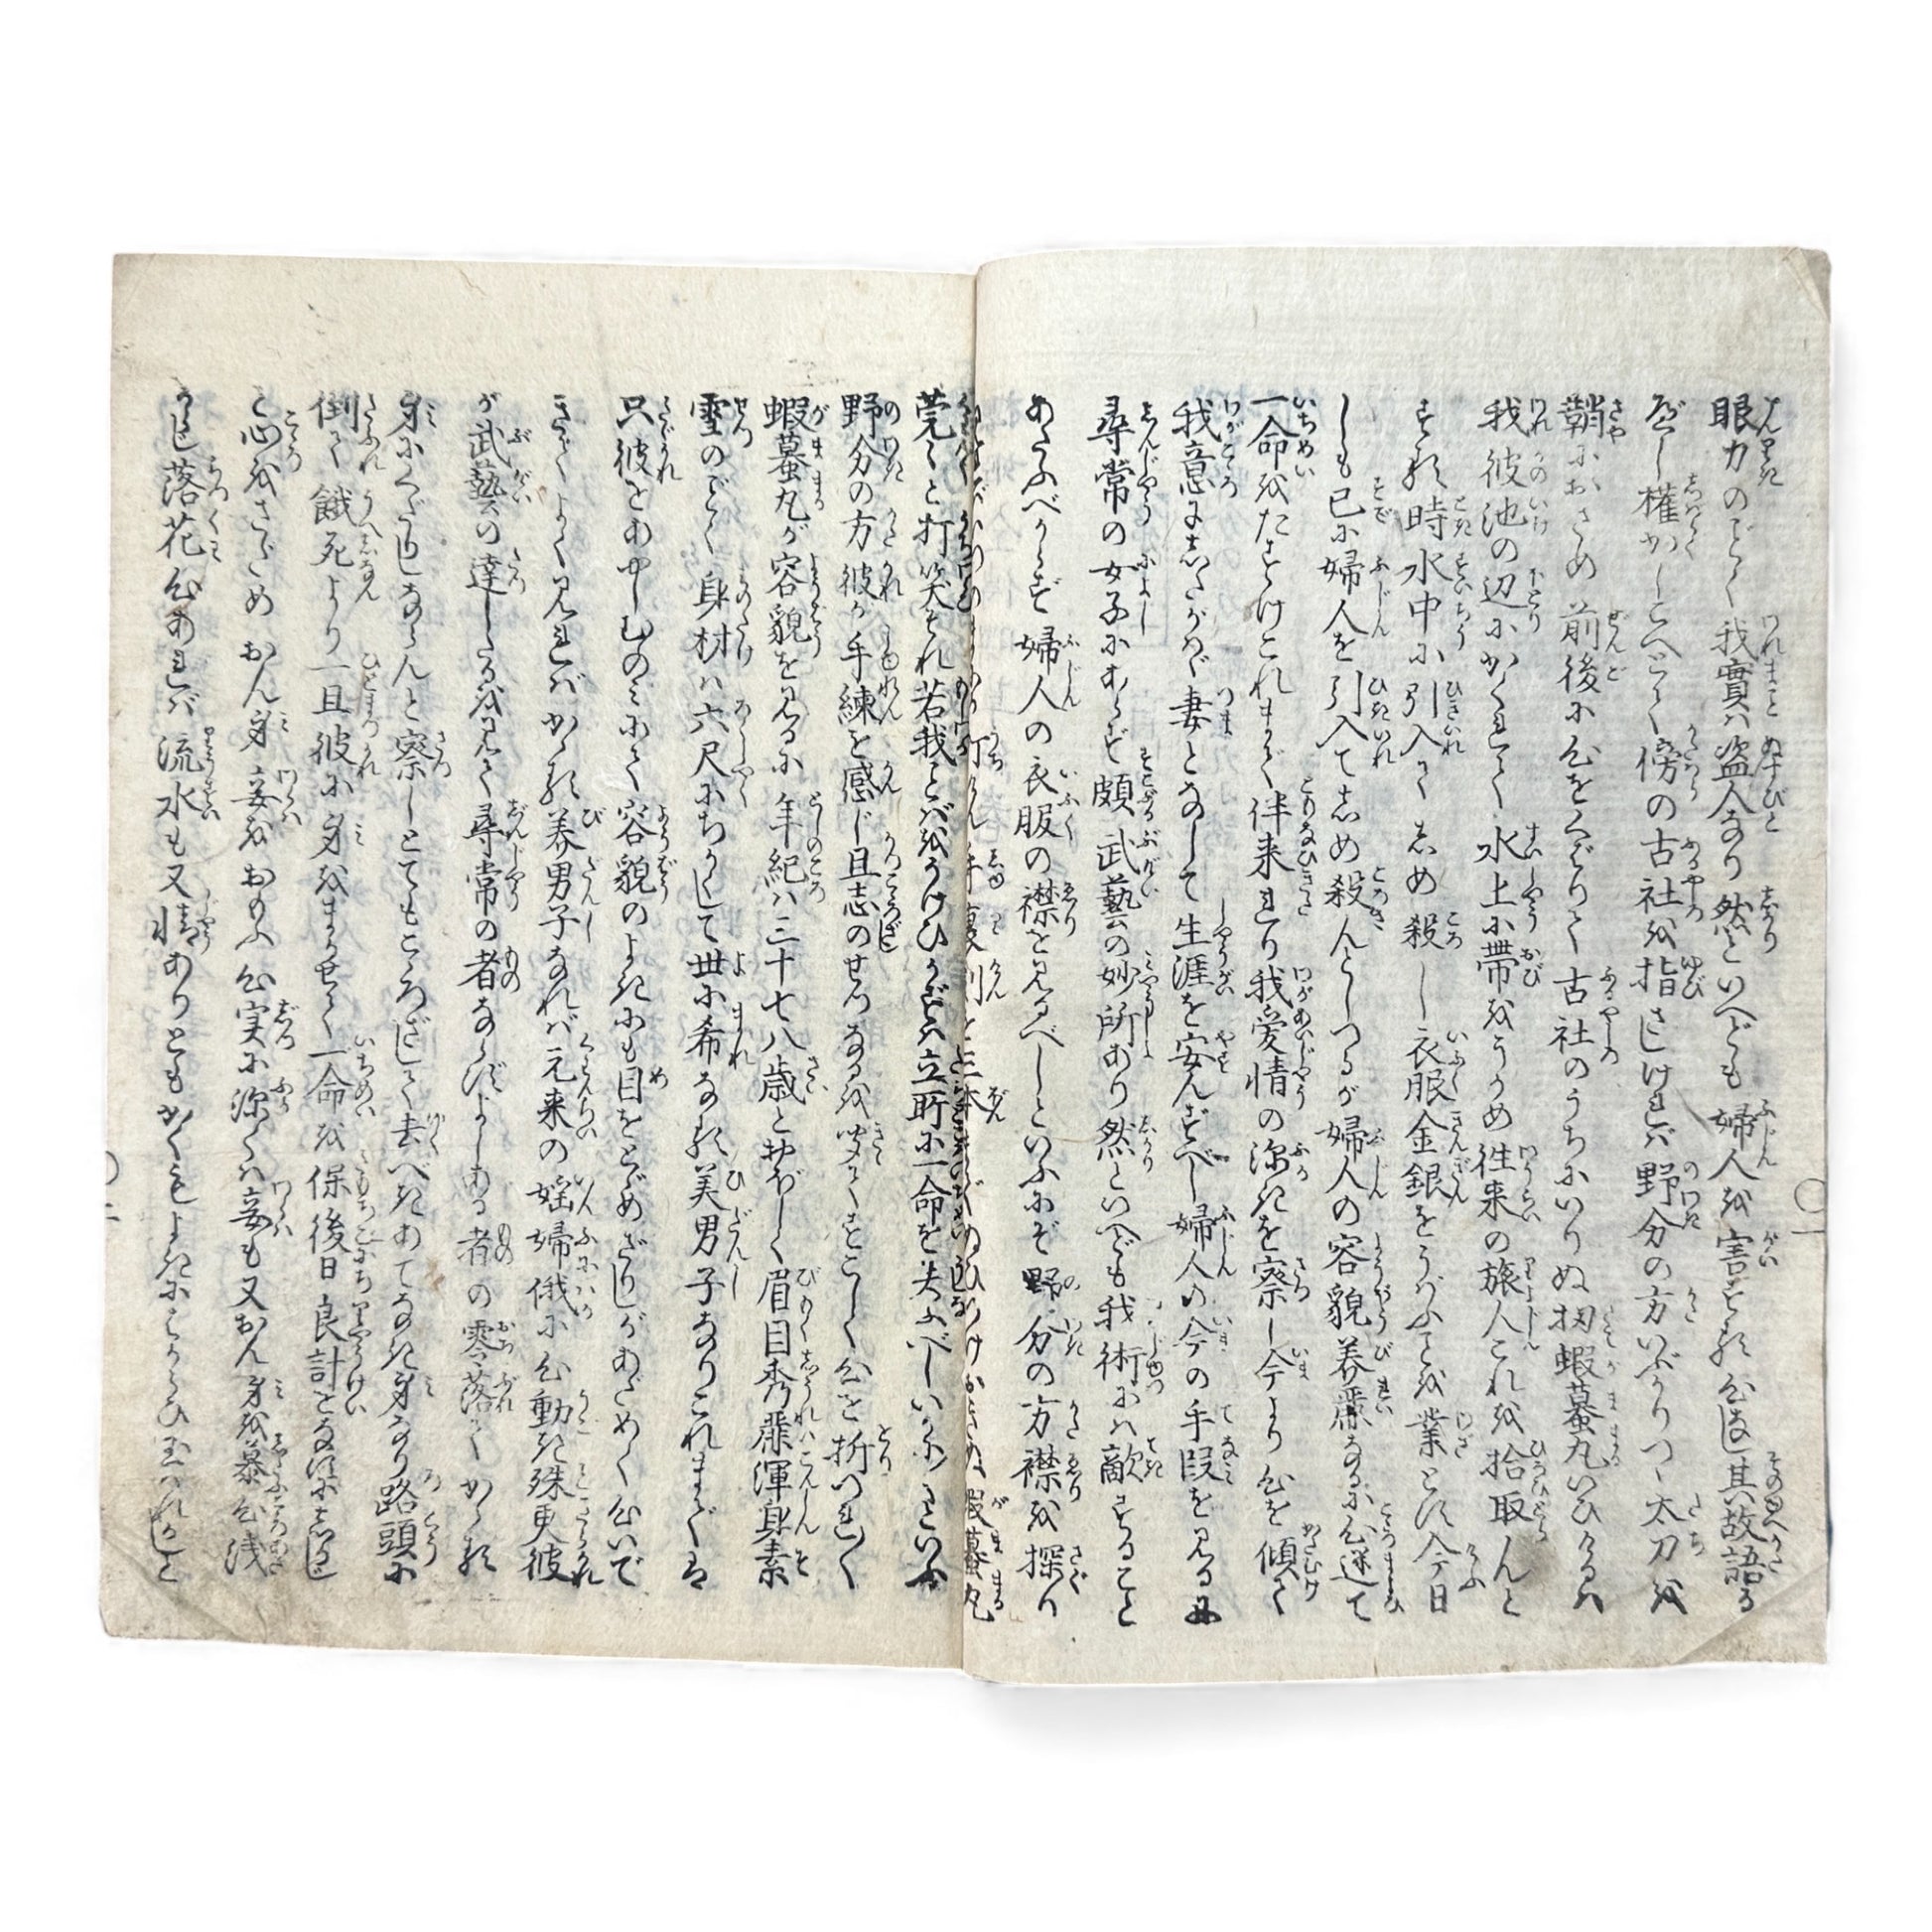 眼力のごとく我實は盗人なり然といへども婦人を害する心なし其故語る
べし權かしこへとて傍の古社を指さしければ野分の方いぶかりつゝ太刀を
鞘におさめ前後に心をくばりて古社のうちにいりぬ扨蝦蟇丸いひけるは
我彼池の辺にかくれて水上に帯をうかめ往来の旅人これを拾取んと
する時水中に引入てしめ殺し衣服金銀をうばふてを業とす今日
しも已に婦人を引入てしめ殺んとしつるが婦人の容貌美麗なるに心迷て
一命をたすけこれまで伴来れり我愛情の深きを察し今より心を傾て
我意にしたがひ妻となりて生涯を安んずべし婦人の今の手段を見るに
尋常の女子にあらず頗武藝の妙所あり然といへども我術には敵すること
あたふべからず婦人の衣服の襟を見るべしといふにぞ野分の方襟を探り
蝦蟇丸
莞〻と打笑それ若我ことばをうけひかずば立所に一命を失ふべしいかに〳〵といふ
野分の方彼が手練を感じ且志のせつなるを聞てすこしく心を折つれ〳〵
蝦蟇丸が容貌を見るに年紀は三十七八歳とおぼしく眉目秀麗渾身素
雪のごとく身材は六尺にちかくして世に希なる美男子なりこれまでは
只彼をあやしむのみにて容貌のよきにも目をとゞめざりしがあらためて心いで
きてよく〳〵見ればかゝる美男子なれば元来の婬婦俄に心動き殊更彼
が武藝の達したるを見て尋常の者ならずよしある者の零落てかゝる
身にくだりしならんと察しとてもこころざして去べきあてなき身なり路頭に
倒て餓死より一旦彼に身をまかせて一命を保後日良計をなすにしかじ
と心をさだめおん身妾をおもふ心実に深くは妾も又おん身を慕心浅
からじ落花心あれば流水も又情ありともかくもよきにはからひ玉はれかしと